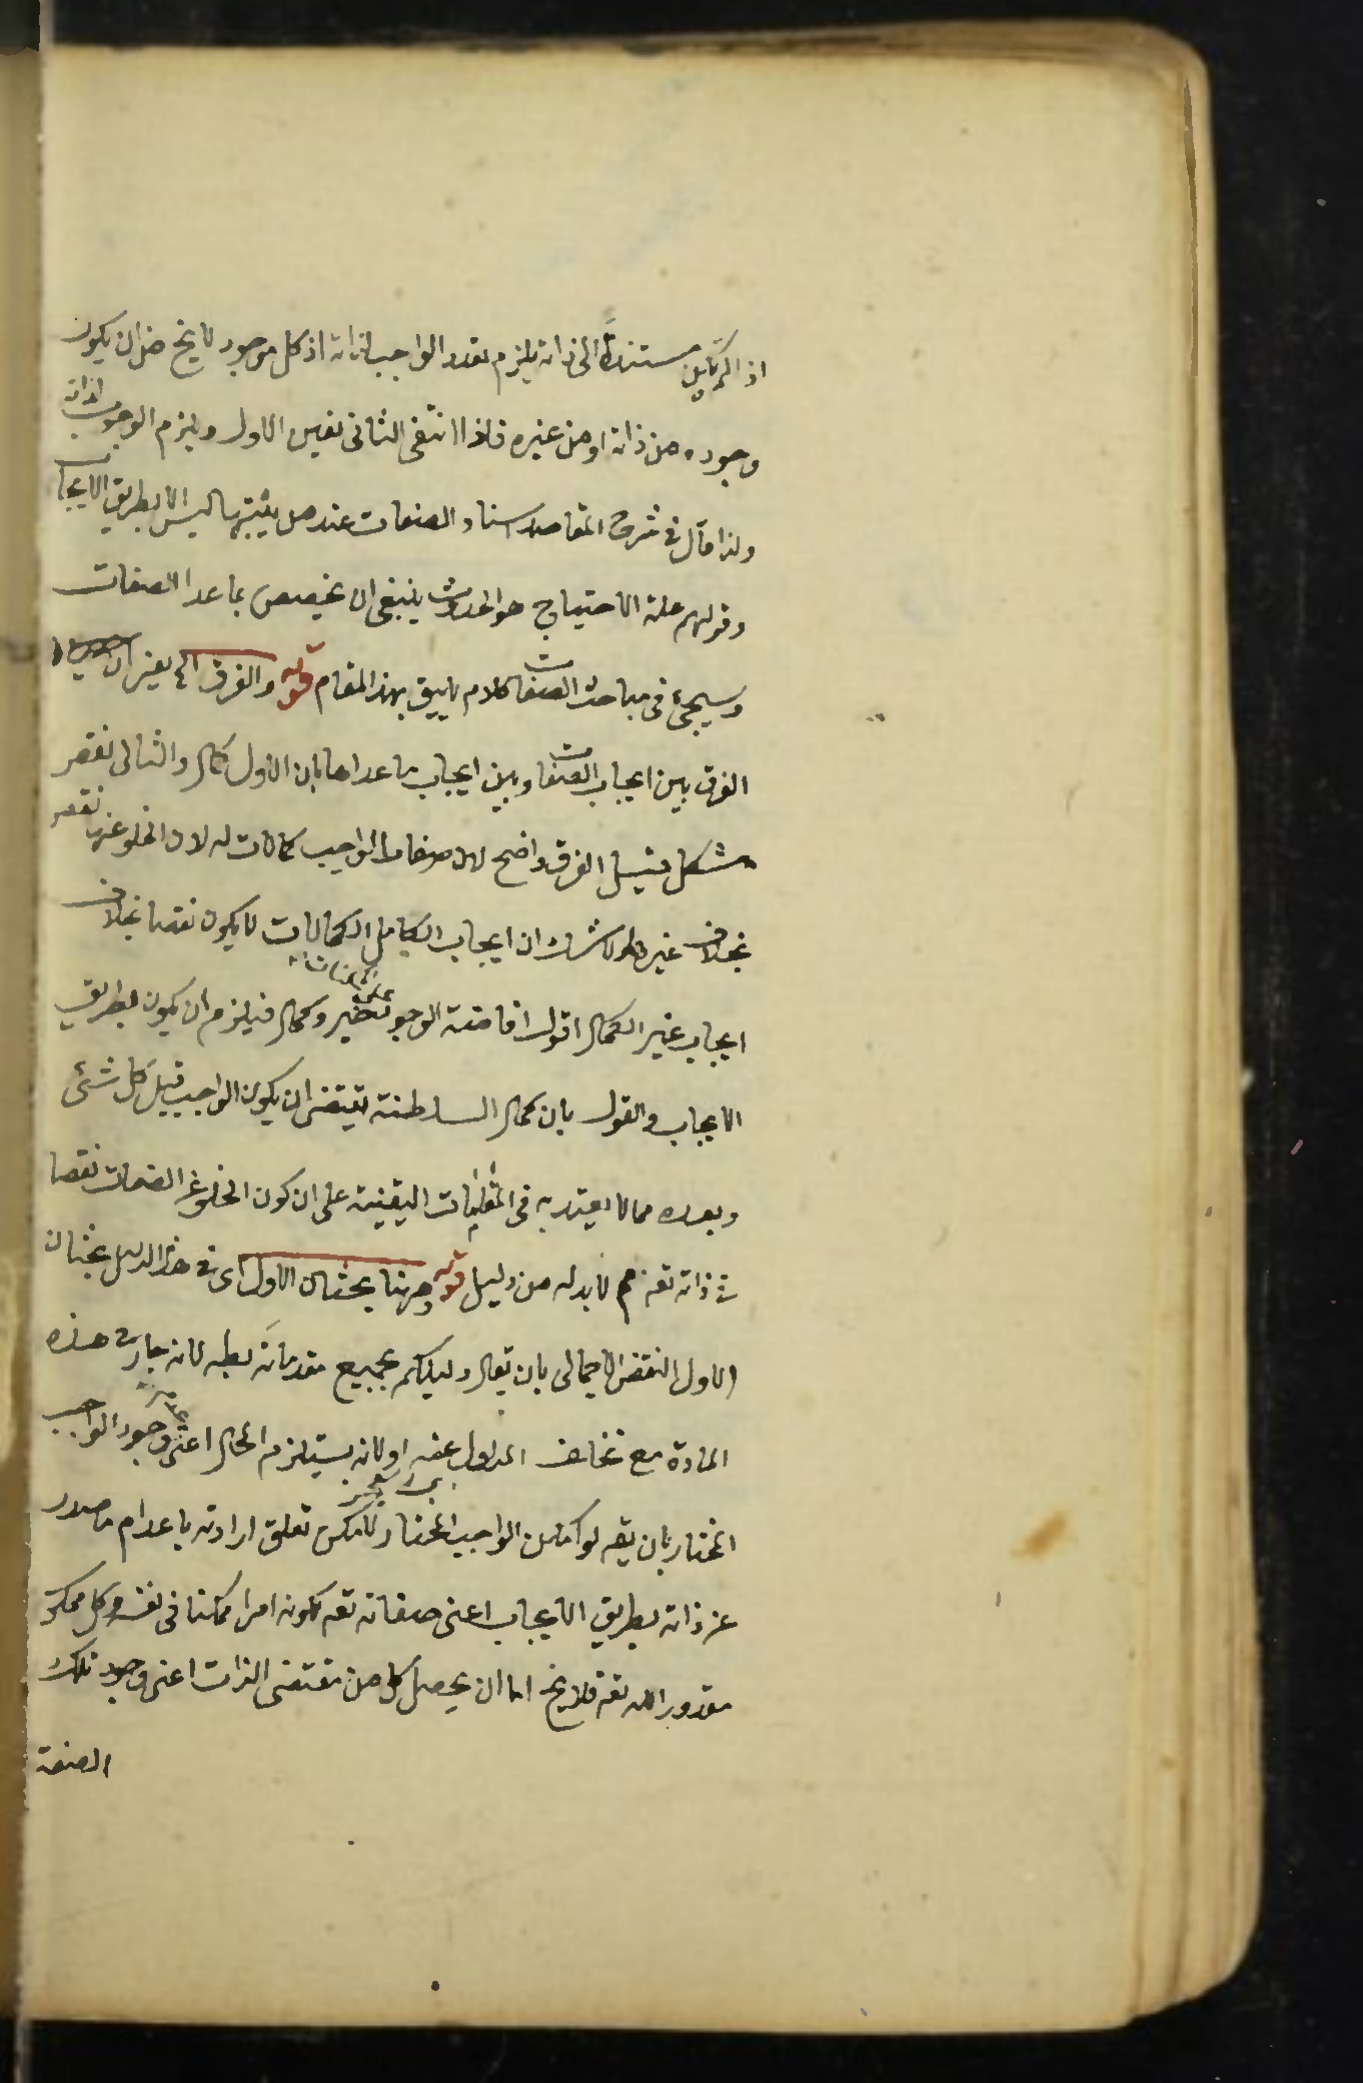 اذا لم تكن مستندة الى ذاته يلزم تعدد الواجب لذاته اذ كل موجود لا يخ من ان يكون
وجوده من ذاته او من غيره فاذا انتفى الثانى تعين الاول ويلزم الوجوب لذاته
ولذا قال فى شرح المقاصد اسناد الصفات عند من يثبتها ليس الا بطريق الايجاب
وقولهم علة الاحتياج هو الحدوث ينبغى ان يخصص بما عدا الصفات
وسيجئ فى مباحث الصفات كلام يليق بهذا المقام قوله والفرق الخ يعنى ان
الفرق بين ايجاب الصفات وبين ايجاب ما عداها بان الاول كمال والثانى نقص
مشكل قيل الفرق واضح لان صفات الواجب كمالات له لان الخلو عنها نقص
بخلاف غيرها ولا شك ان ايجاب الكامل الكمالات لا يكون نقصا بخلاف
ايجاب غير الكمال اقول افاضة الوجود على الممكنات خير وكمال فيلزم ان يكون بطريق
الايجاب والقول بان كمال السلطنة يقتضى ان يكون الواجب قبل كل شئ
وبعده مما لا يعتد به فى المطالب اليقينية على ان كون الخلو عن الصفات نقصا
فى ذاته تعه مم لا بد له من دليل قوله وههنا بحثان الاول اى فى هذا الدليل بحثان
الاول النقض الاجمالى بان يقال دليلكم بجميع مقدماته بط لانه جار فى هذه
المادة مع تخلف المدلول عنه او لانه يستلزم المحال اعنى وجود الواجب
المختار بان يقه لو امكن الواجب المختار لامكن تعلق ارادته باعدام ما صدر
عن ذاته بطريق الايجاب اعنى صفاته تعه لكونه امرا ممكنا فى نفسه وكل ممكن
مقدور الله تعه فلا يخ اما ان يحصل كل من مقتضى الذات اعنى وجود تلك
الصفة